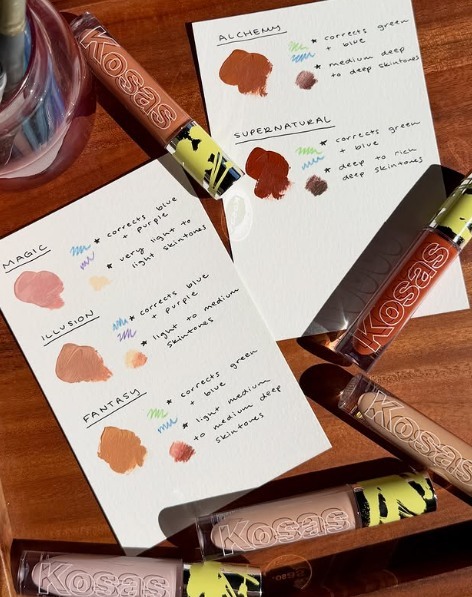 Kosas
ALCHEMY
* corrects green
+ blue
* medium deep
to deep skintones
SUPERNATURAL
* corrects green
+ blue
* deep to rich
deep skintones
MAGIC
* corrects blue
+ purple
* very light to
light skintones
ILLUSION
* corrects blue
+ purple
* light to medium
skintones
FANTASY
* corrects green
+ blue
* light medium
to medium deep
skintones
Kosas
Kosas
Kosas
Kosas